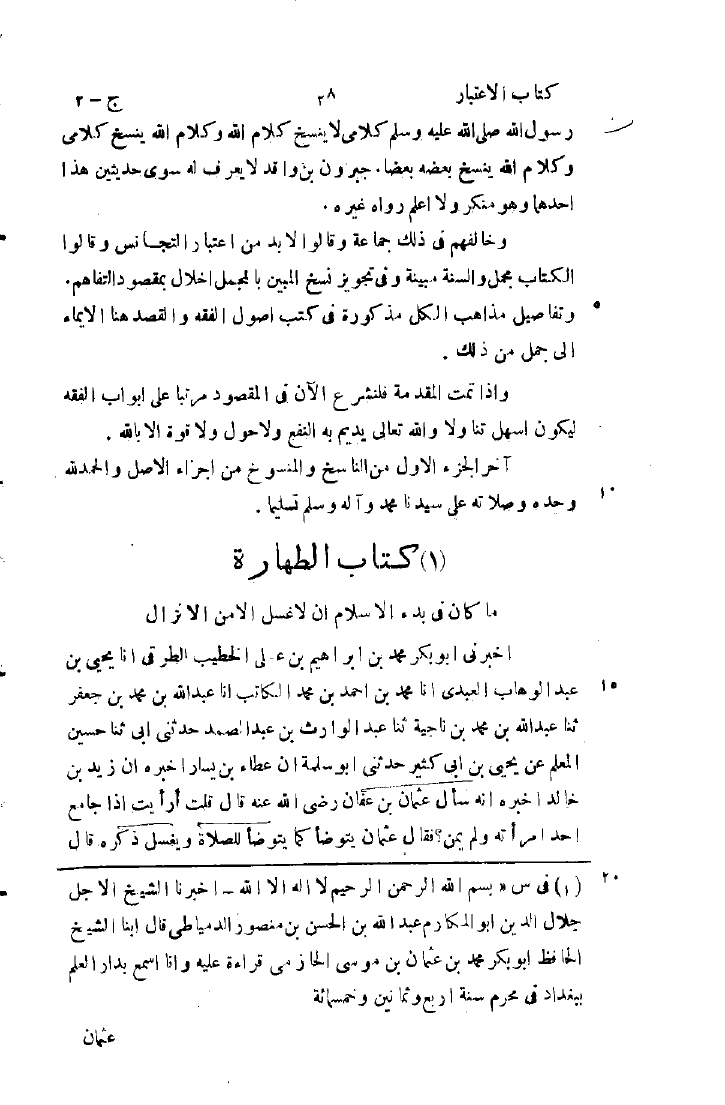 كتاب الاعتبار ٢٨ ج - ٢
رسول الله صلى الله عليه وسلم كلامى لا ينسخ كلام الله وكلام الله ينسخ كلامى
وكلام الله ينسخ بعضه بعضا. جبرون بن واقد لا يعرف له سوى حديثين هذا
احدهما وهو منكر ولا اعلم رواه غيره .
وخالفهم فى ذلك جماعة وقالوا لابد من اعتبار التجانس وقالوا
الكتاب مجمل والسنة مبينة وفى تجويز نسخ المبين بالمجمل اخلال بمقصود التفاهم.
وتفاصيل مذاهب الكل مذكورة فى كتب اصول الفقه والقصد هنا الايماء ٥
الى جمل من ذلك .
واذا تمت المقدمة فلنشرع الآن فى المقصود مرتبا على ابواب الفقه
ليكون اسهل تناولا والله تعالى يديم به النفع ولاحول ولا قوة الا بالله .
آخر الجزء الاول من الناسخ والمنسوخ من اجزاء الاصل والحمدلله
وحده وصلاته على سيدنا محمد وآله وسلم تسليما . ١٠
(١) كتاب الطهارة
ما كان فى بدء الاسلام ان لاغسل الا من الانزال
اخبرنى ابوبكر محمد بن ابراهيم بن على الخطيب الطرقى انا يحيى بن
عبد الوهاب العبدى انا محمد بن احمد بن محمد الكاتب انا عبدالله بن محمد بن جعفر ١٥
ثنا عبدالله بن محمد بن ناجية ثنا عبد الوارث بن عبد الصمد حدثنى ابى ثنا حسين
المعلم عن يحيى بن ابى كثير حدثنى ابو سلمة ان عطاء بن يسار اخبره ان زيد بن
خالد اخبره انه سأل عثمان بن عفان رضى الله عنه قال قلت أرأيت اذا جامع
احد امرأته ولم يمن؟ فقال عثمان يتوضأ كما يتوضأ للصلاة ويغسل ذكره قال
(١) فى س « بسم الله الرحمن الرحيم لا اله الا الله - اخبرنا الشيخ الاجل ٢٠
جلال الدين ابو المكارم عبدالله بن الحسن بن منصور الدمياطى قال ابنا الشيخ
الحافظ ابوبكر محمد بن عثمان بن موسى الحازمى قراءة عليه وانا اسمع بدار العلم
ببغداد فى محرم سنة اربع وثمانين وخمسمائة
عثمان